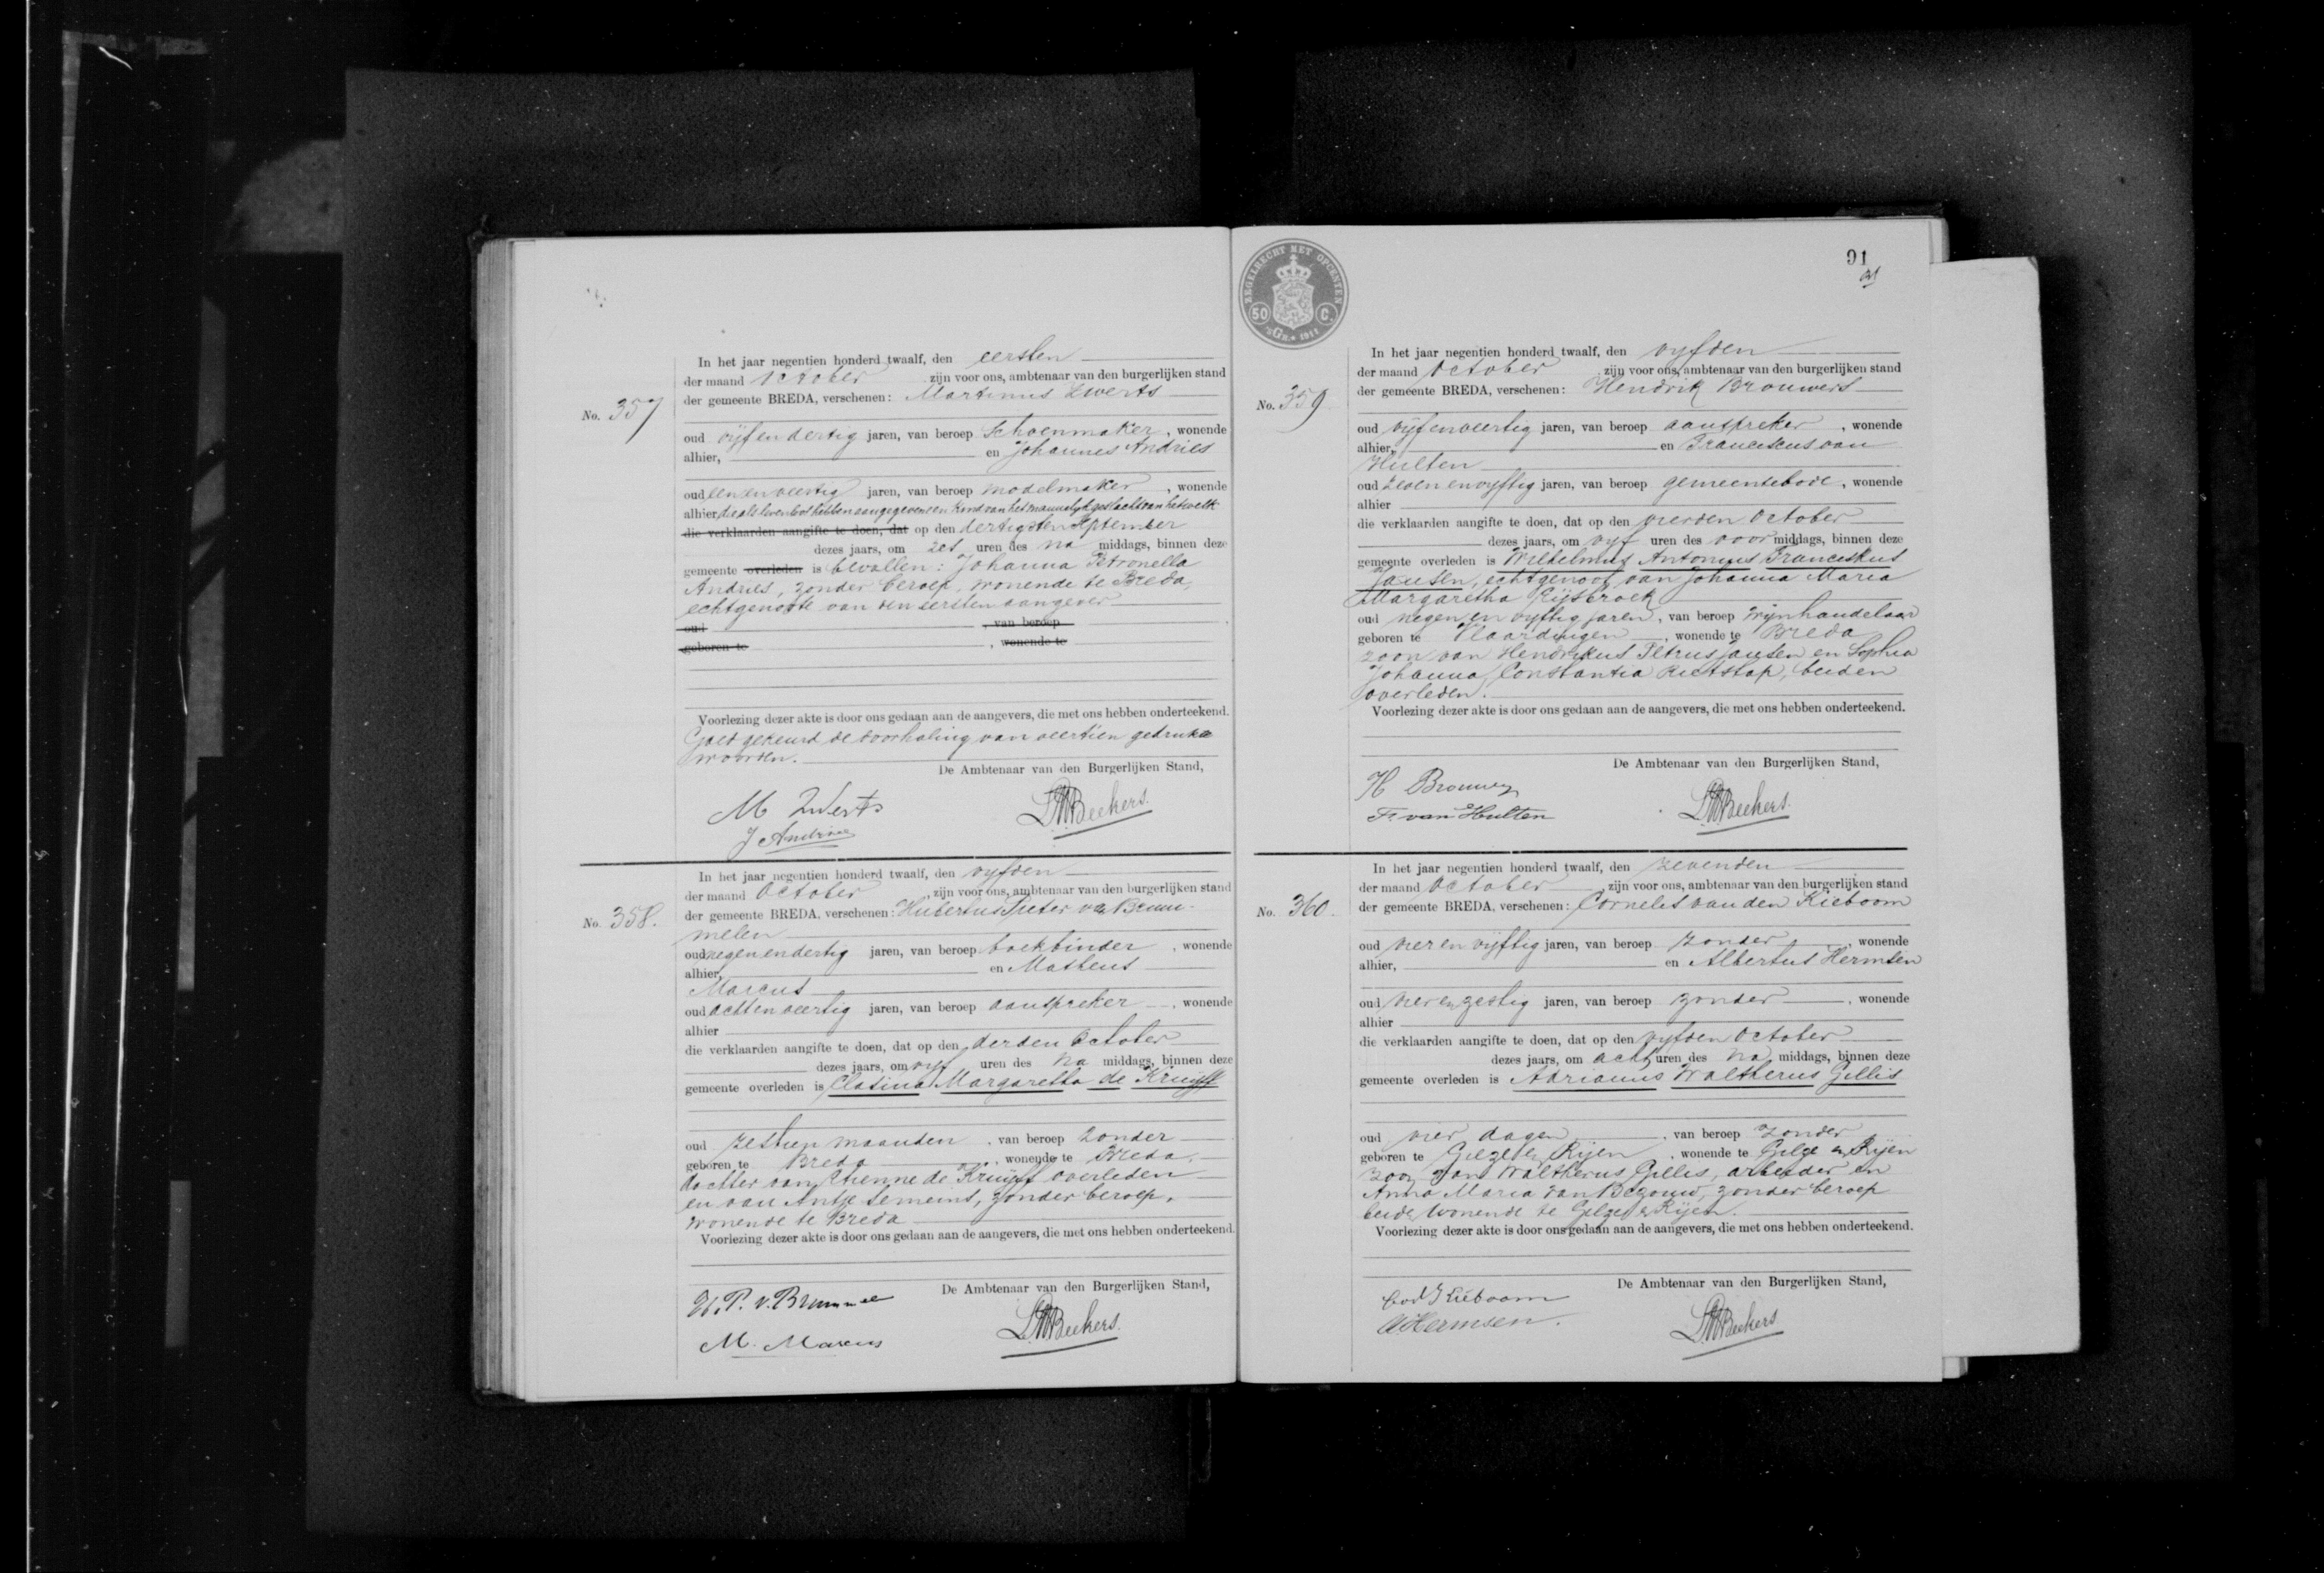 In het jaar negentien honderd twaalf, den eersten
der maand October, zijn voor ons, ambtenaar van den burgerlijken stand
der gemeente BREDA, verschenen: Martinus Zwerts
No. 357
oud vijf en dertig jaren, van beroep Schoenmaker, wonende
alhier, en Johannes Andries
oud een en veertig jaren, van beroep modelmaker, wonende
alhier, die als levenloos hebben aangegeven een kind van het mannelijk geslacht van hetwelk
die verklaarden aangifte te doen, dat op den dertigsten September
dezes jaars, om zes uren des na middags, binnen deze
gemeente overleden is bevallen: Johanna Petronella
Andries, zonder beroep, wonende te Breda,
echtgenoote van den eersten aangever
oud , van beroep
geboren te , wonende te
Voorlezing dezer akte is door ons gedaan aan de aangevers, die met ons hebben onderteekend.
Goedgekeurd de doorhaling van veertien gedrukte
woorden.
De Ambtenaar van den Burgerlijken Stand,
M Zwerts
J Andries
Beekers.
In het jaar negentien honderd twaalf, den vyfden
der maand October, zijn voor ons, ambtenaar van den burgerlijken stand
der gemeente BREDA, verschenen: Hubertus Pieter van Brum-
No. 358.
melen
oud negen en dertig jaren, van beroep boekbinder, wonende
alhier, en Matheus
Marcus
oud acht en veertig jaren, van beroep aanspreker, wonende
alhier
die verklaarden aangifte te doen, dat op den derden October
dezes jaars, om vyf uren des na middags, binnen deze
gemeente overleden is Clasina Margaretha de Kruijff
oud zestien maanden, van beroep zonder
geboren te Breda, wonende te Breda,
dochter van Etienne de Kruijff overleden
en van Antje Semeins, zonder beroep,
wonende te Breda
Voorlezing dezer akte is door ons gedaan aan de aangevers, die met ons hebben onderteekend.
De Ambtenaar van den Burgerlijken Stand,
H. P. v. Brummele
M. Marcus
Beekers.
ZEGELRECHT MET OPCENTEN
50 C.
Gr. 1911
91
91
In het jaar negentien honderd twaalf, den vyfden
der maand October, zijn voor ons, ambtenaar van den burgerlijken stand
der gemeente BREDA, verschenen: Hendrik Brouwers
No. 359
oud vyf en veertig jaren, van beroep aanspreker, wonende
alhier, en Franciscus van
Hulten
oud zeven en vyftig jaren, van beroep gemeentebode, wonende
alhier
die verklaarden aangifte te doen, dat op den vierden October
dezes jaars, om vyf uren des voor middags, binnen deze
gemeente overleden is Wilhelmus Antonius Franciskus
Jansen, echtgenoot van Johanna Maria
Margaretha Gijsbroek
oud negen en vyftig jaren, van beroep wijnhandelaar
geboren te Vlaardingen, wonende te Breda
zoon van Hendrikus Petrus Jansen en Sophia
Johanna Constantia Rietstap, beiden
overleden.
Voorlezing dezer akte is door ons gedaan aan de aangevers, die met ons hebben onderteekend.
De Ambtenaar van den Burgerlijken Stand,
H Brouwers
F. van Hulten
Beekers.
In het jaar negentien honderd twaalf, den zevenden
der maand October, zijn voor ons, ambtenaar van den burgerlijken stand
der gemeente BREDA, verschenen: Cornelis van den Kieboom
No. 360.
oud vier en vijftig jaren, van beroep zonder, wonende
alhier, en Albertus Hermsen
oud vier en zestig jaren, van beroep zonder, wonende
alhier
die verklaarden aangifte te doen, dat op den vyfden October
dezes jaars, om acht uren des na middags, binnen deze
gemeente overleden is Adrianus Waltherus Gillis
oud vier dagen, van beroep zonder
geboren te Gilze en Rijen, wonende te Gilze en Rijen
zoon van Waltherus Gillis, arbeider en
Anna Maria van Bezouw, zonder beroep
beide wonende te Gilze en Rijen.
Voorlezing dezer akte is door ons gedaan aan de aangevers, die met ons hebben onderteekend.
De Ambtenaar van den Burgerlijken Stand,
Kieboom
A Hermsen.
Beekers